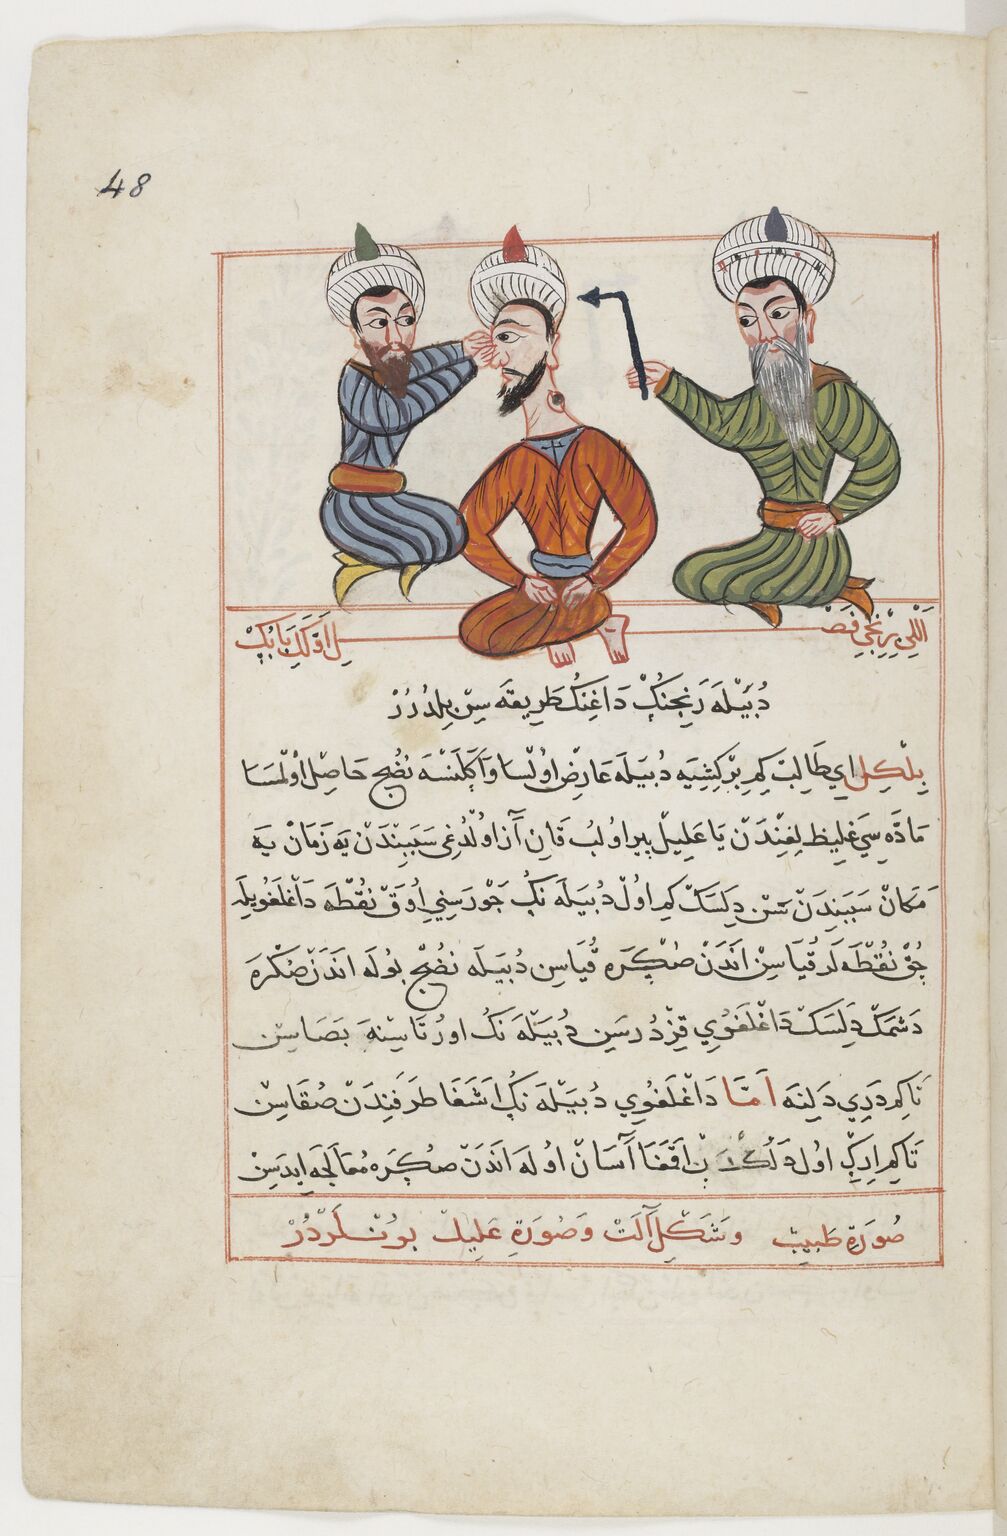 48
اَللِّي بِرِنْجِي فَصْلْ اَوَّلْكِي بَابُكْ
دُبَيْلَه رَنجِنُكْ دَاغِنُكْ طَرِيقَه سِنْ بِلْدُرُرْ
بِلْكِلْ اي طَالِبْ كِم بِرْ كِشِيَه دُبَيْلَه عَارِضْ اوُلْسَا وَاَكِلَنْسَه نُضْجْ حَاصِلْ اُولْمَسَا
مَادَّه سِي غَلِيظ لِغِنْدَنْ يَا عَلِيلْ پِير اوُلُبْ قَانِ آزْ اوُلْدُغِي سَبَبِنْدَنْ يَه زَمَانْ يَه
مَكَانْ سَبَبِنْدَنْ سَنْ دِلَسَكْ كِم اوُلْ دُبَيْلَه نُكْ چَوْرَسِنِي اوُفَقْ نُقْطَه دَاغْلَغُويِلَه
چُوقْ نُقْطَه لَر قُيَاسِنْ اَنْدَنْ صُكْرَه قُيَاسِن دُبَيْلَه نُضْجْ بُولَه اَنْدَنْ صُكْرَه
دَشْمَكْ دِلَسَكْ دَاغْلَغُوِي قِزْدُرَسِن دُبَيْلَه نُكْ اورْتَاسِنَه بَصَاسِن
تَا كِم دَرِي دَلِنَه اَمَّا دَاغْلَغُوِي دُبَيْلَه نُكْ اَشَغَا طَرَفِنْدَنْ صُقَاسِنْ
تَا كِم اِرِكْ اوُل دَلُكْدَنْ اَقْمَغَا آسَانْ اوُلَه اَنْدَنْ صُكْرَه مُعَالَجَه اِيدَسِنْ
صُورَةِ طَبِيبْ وَشَكْلِ آلَتْ وَصُورَةِ عَلِيلْ بوُنْلَرْدُرْ